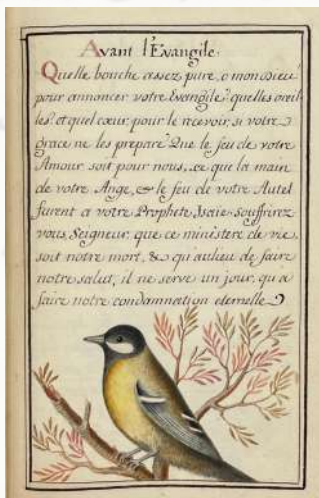 Avant l'Evangile.
Quelle bouche assez pure, o mon Dieu!
pour annoncer votre Evangile? quelles oreil
les? et quel cœur, pour le recevoir, si votre
grace ne les prepare? Que le feu de votre
Amour soit pour nous, ce que la main
de votre Ange, & le feu de votre Autel
furent a votre Prophete, Isaie. Souffrirez
vous, Seigneur, que ce ministere de vie,
soit notre mort, & qu'aulieu de faire
notre salut, il ne serve un jour, qu'a
faire notre condamnation eternelle